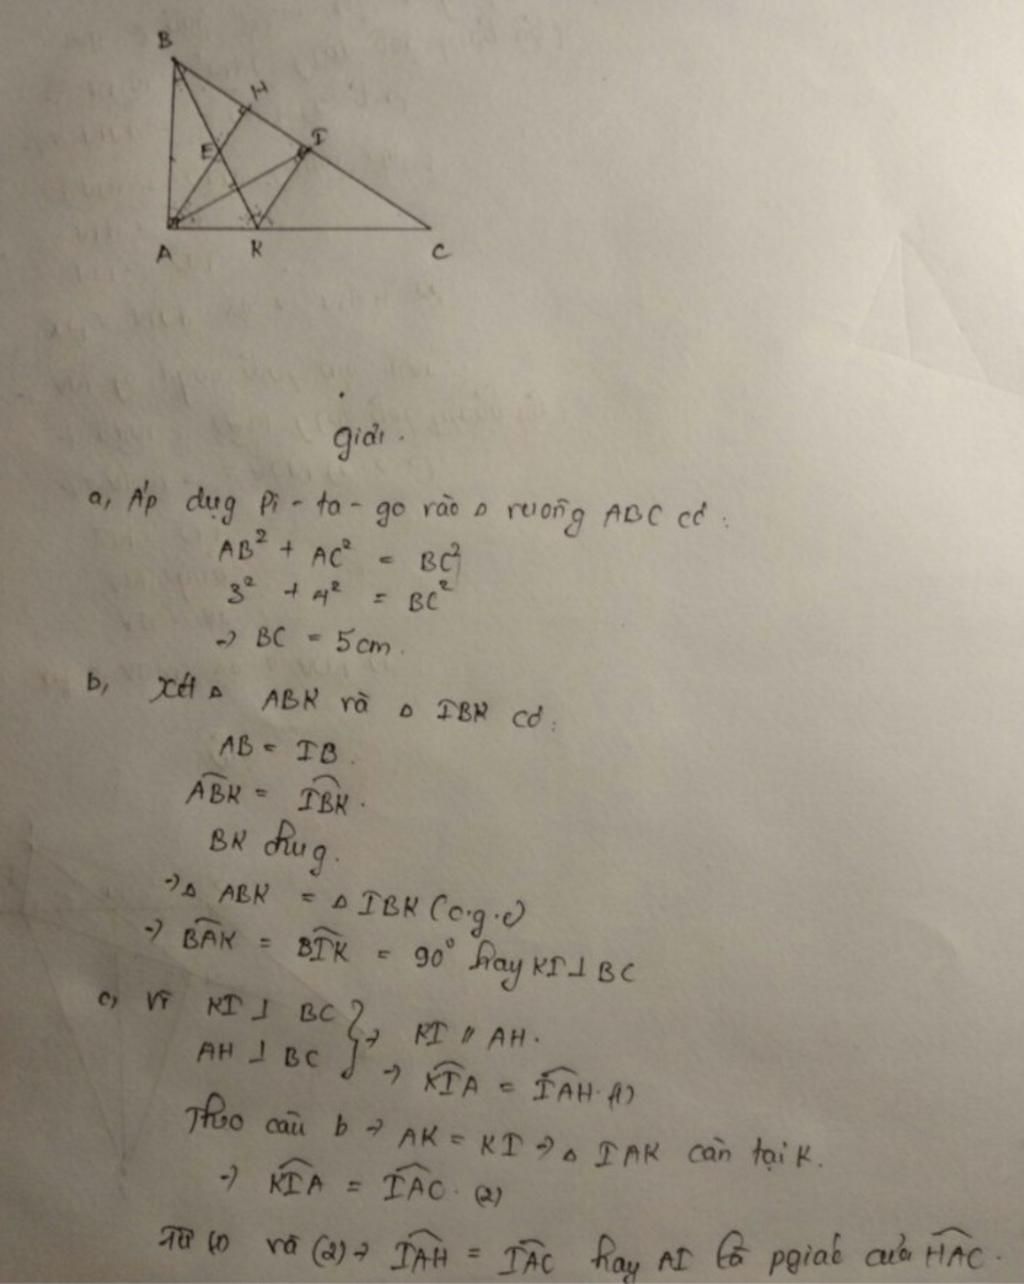 B
H
E
I
A
K
C
Giải.
a, Áp dụg Pi-ta-go vào Δ vuông ABC có:
AB² + AC² = BC²
3² + 4² = BC²
→ BC = 5cm.
b, Xét Δ ABK và Δ IBK có:
AB = IB.
\widehat{ABK} = \widehat{IBK}.
BK chug.
→ Δ ABK = Δ IBK (c.g.c)
→ \widehat{BAK} = \widehat{BIK} = 90° hay KI ⊥ BC
c, Vì KI ⊥ BC } → KI // AH.
AH ⊥ BC
→ \widehat{KIA} = \widehat{IAH}. (1)
Theo câu b → AK = KI → Δ IAK cân tại K.
→ \widehat{KIA} = \widehat{IAC}. (2)
Từ (1) và (2) → \widehat{IAH} = \widehat{IAC} hay AI là pgiác của \widehat{HAC}.